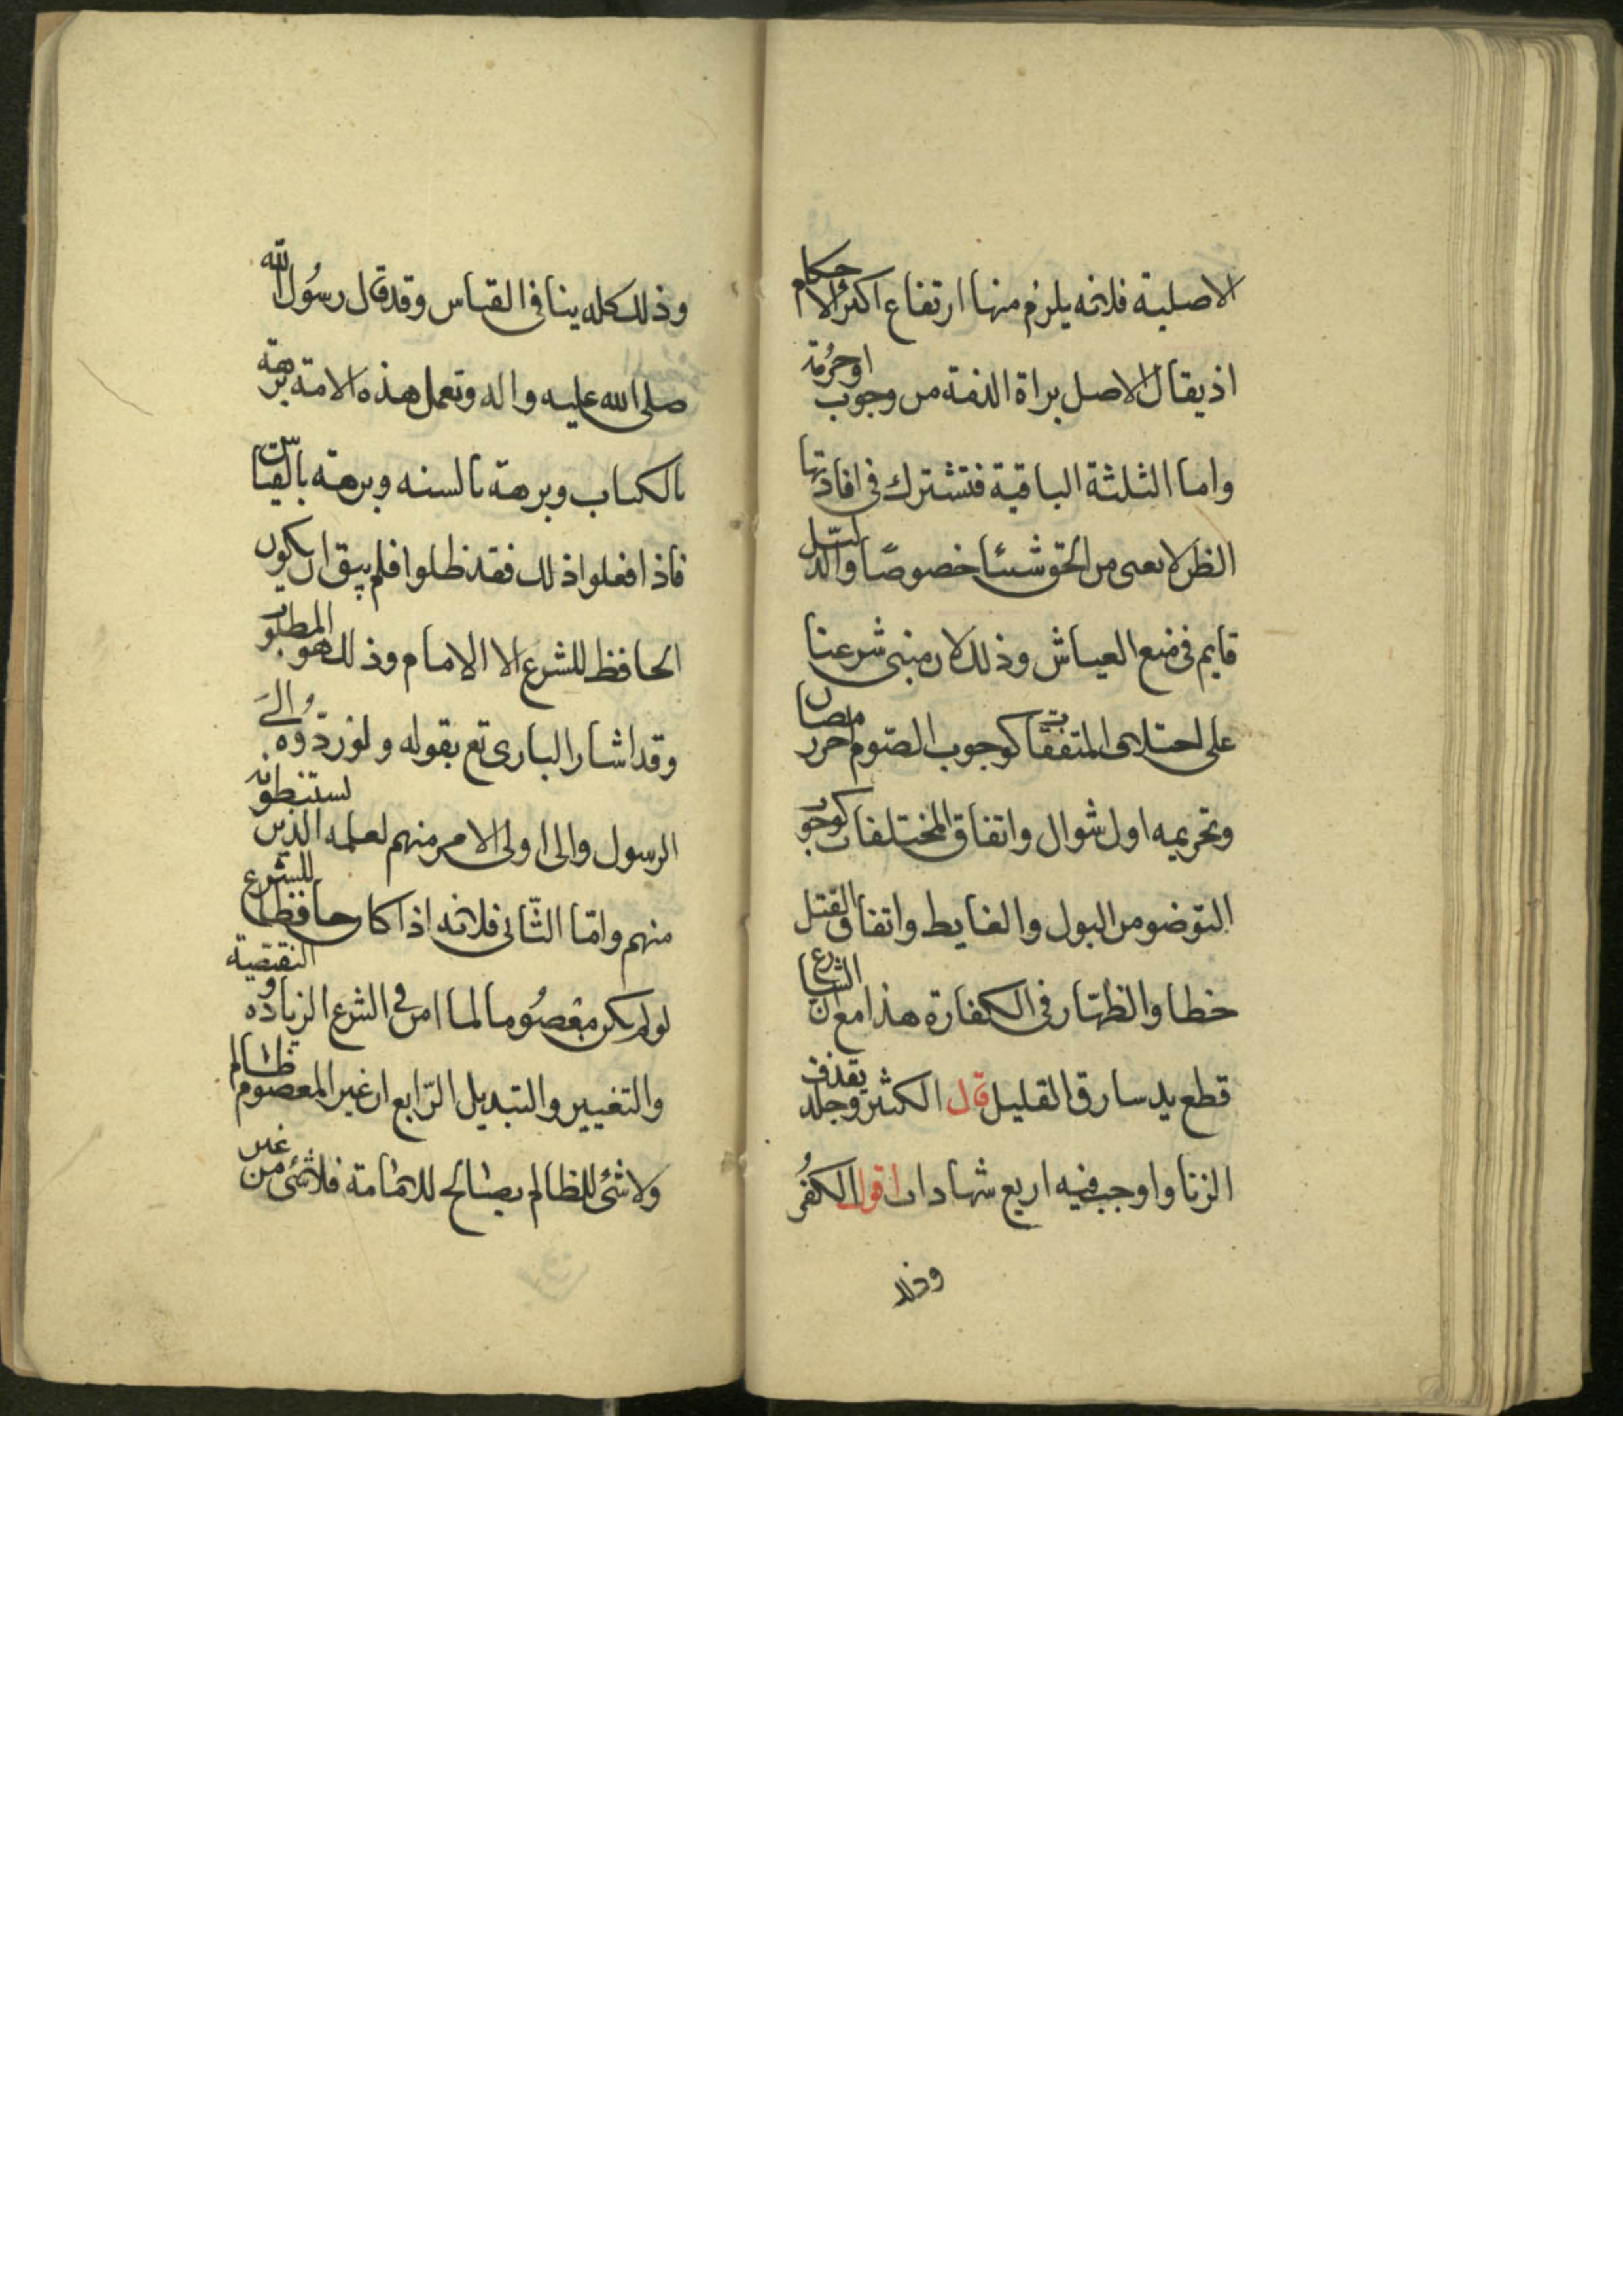 الاصلية فلانه يلزم منها ارتفاع اكثر الاحكام
اذ يقال الاصل براة الذمة من وجوب اوحرمة
واما الثلثة الباقية فتشترك فى افادتها
الظن لا يغنى من الحق شيئا خصوصًا والدليل
قايم فى منع القياس وذلك لان مبنى شرعنا
على اختلاف المتفقات كوجوب الصوم اخر رمضان
وتحريمه اول شوال واتفاق المختلفات كوجوب
التوضو من البول والغايط واتفاق القتل
خطا والظهار فى الكفارة هذا مع ان الشارع
قطع يد سارق القليل قال الكثير وجلد بقذف
الزنا واوجب فيه اربع شهادات اقول الكفر
وذلك
وذلك كله ينافى القياس وقد قال رسُول الله
صلى الله عليه واله وتعمل هذه الامة برهة
بالكتاب وبرهة بالسنه وبرهة بالقياس
فاذا فعلوا ذلك فقد ظلوا فلم يبق ان يكون
الحافظ للشرع الا الامام وذلك هو المطلوب
وقد اشار البارى تع بقوله ولو ردّوُه الىَ
الرسول والى اولى الامر منهم لعلمه الذين يستنبطونه
منهم وامّا الثّانى فلانه اذا كان حافظا للشرع
لو لم يكن معصُوما لما امن فى الشرع الزيادة و النقيصة
والتغيير والتبديل الرّابع ان غير المعصوم ظالم
ولا شئ للظالم بصالح للامامة فلا شئ من غير